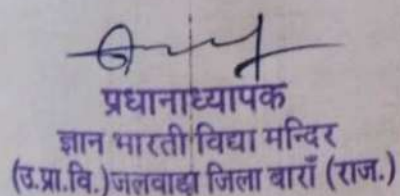 प्रधानाध्यापक
ज्ञान भारती विद्या मन्दिर
(उ.प्रा.वि.) जलवाडा जिला बाराँ (राज.)